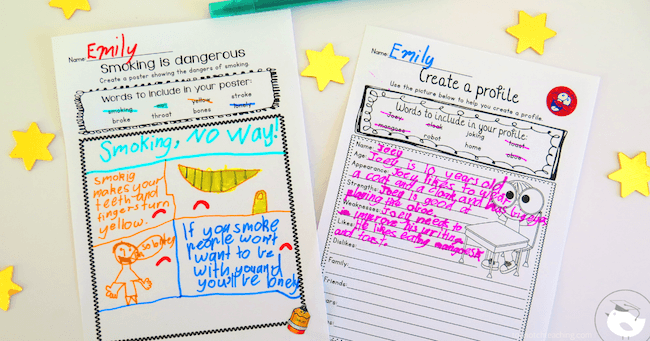 Name: Emily
Smoking is dangerous
Create a poster showing the dangers of smoking.
Words to include in your poster:
smoking yellow stroke
broke throat bones lonely
Smoking, NO Way!
smokig
makes your
teeth and
fingers turn
yellow.
so lonley
If you smoke
people won't
want to be
with you and
you'll be lonely
Name: Emily
Create a profile
Use the picture below to help you create a profile.
Words to include in your profile:
Joey oak joking toast
mangoes robot home oboe
Name: Joey
Age: Joey is 10 years old
Appearance: Joey likes to wear
a coat and a cloak and has big eyes
Strengths: Joey is good at
playing the oboe.
Weaknesses: Joey needs to
improve his writing
Likes: He likes eating mangoes
and toast.
Dislikes:
Family:
Friends: